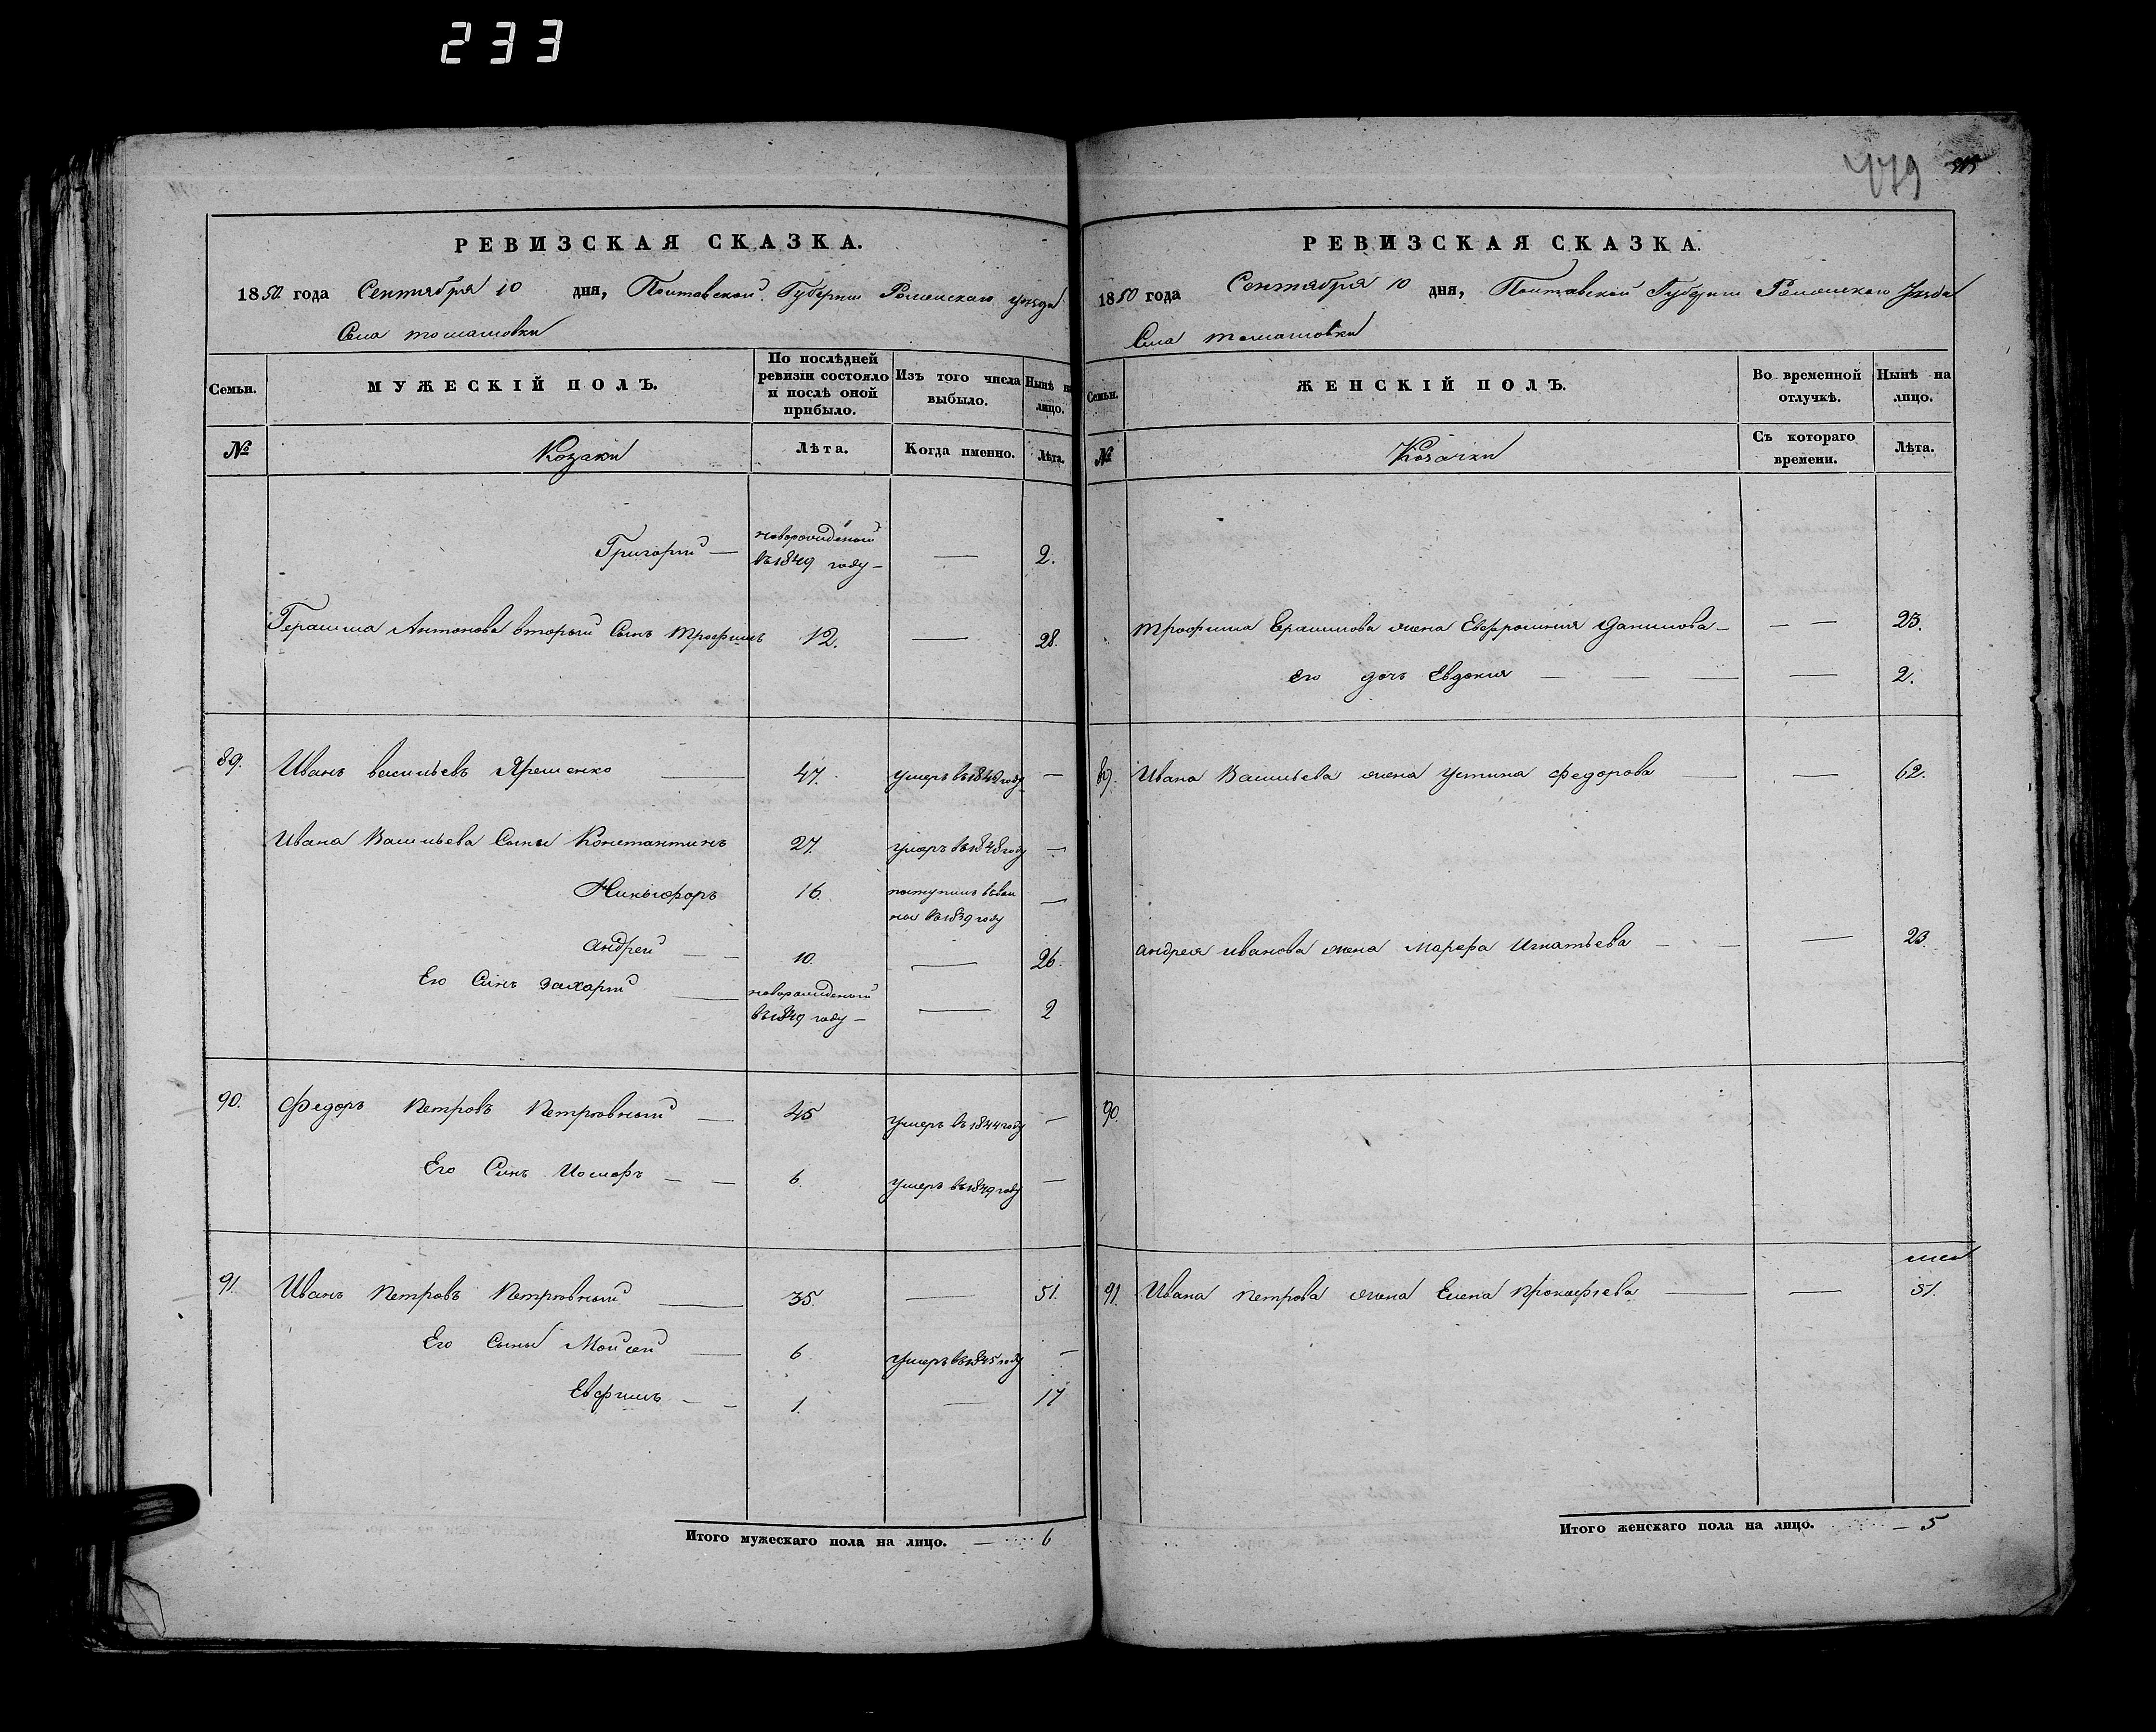 233
479
РЕВИЗСКАЯ СКАЗКА.
1850 года Сентября 10 дня, Полтавской Губернии Роменскаго уѣзда
Села томашовки
Семьи.
МУЖЕСКІЙ ПОЛЪ.
По послѣдней ревизіи состояло и послѣ оной прибыло.
Изъ того числа выбыло.
Нынѣ на лицо.
№
Козаки
Лѣта.
Когда именно.
Лѣта.
Григорий — новорожденый въ 1849 году — — 2.
Герасима Антонова вторый Сынъ трофимъ 12. — 28.
89. Иванъ васильевъ Ярешенко — 47. умеръ въ 1849 году —
Ивана Васильева Сыны Константинъ 27. умеръ въ 1848 году —
Никифоръ 16. поступилъ въ вои
ны въ 1839 году —
андрей — — 10. — 26.
Его Сынъ захарий — новорожденый въ 1849 году — — 2
90. Федоръ Петровъ Петровный — 45 умеръ въ 1844 году —
Его Сынъ Иосифъ — — 6. умеръ въ 1849 году —
91. Иванъ Петровъ Петровный — 35. — 51.
Его Сыны Мойсей — 6. умеръ въ 1845 году —
Евфимъ — — 1. — 17
Итого мужескаго пола на лицо. — 6
РЕВИЗСКАЯ СКАЗКА.
1850 года Сентября 10 дня, Полтавской Губернии Роменскаго Уѣзда
Села томашовки
Семьи.
ЖЕНСКІЙ ПОЛЪ.
Во временной отлучкѣ.
Нынѣ на лицо.
№
Козачки
Съ котораго времени.
Лѣта.
трофима Ерасимова жена Евфросиния Данилова — — — 25.
его дочь Евдокия — — — — 2.
89. Ивана Васильева жена Устина федорова — — 62.
андрея иванова жена Марфа Игнатьева — — — 23.
90.
91. Ивана Петрова жена Елена Прокофиева — — 51.
Итого женскаго пола на лицо. — 5